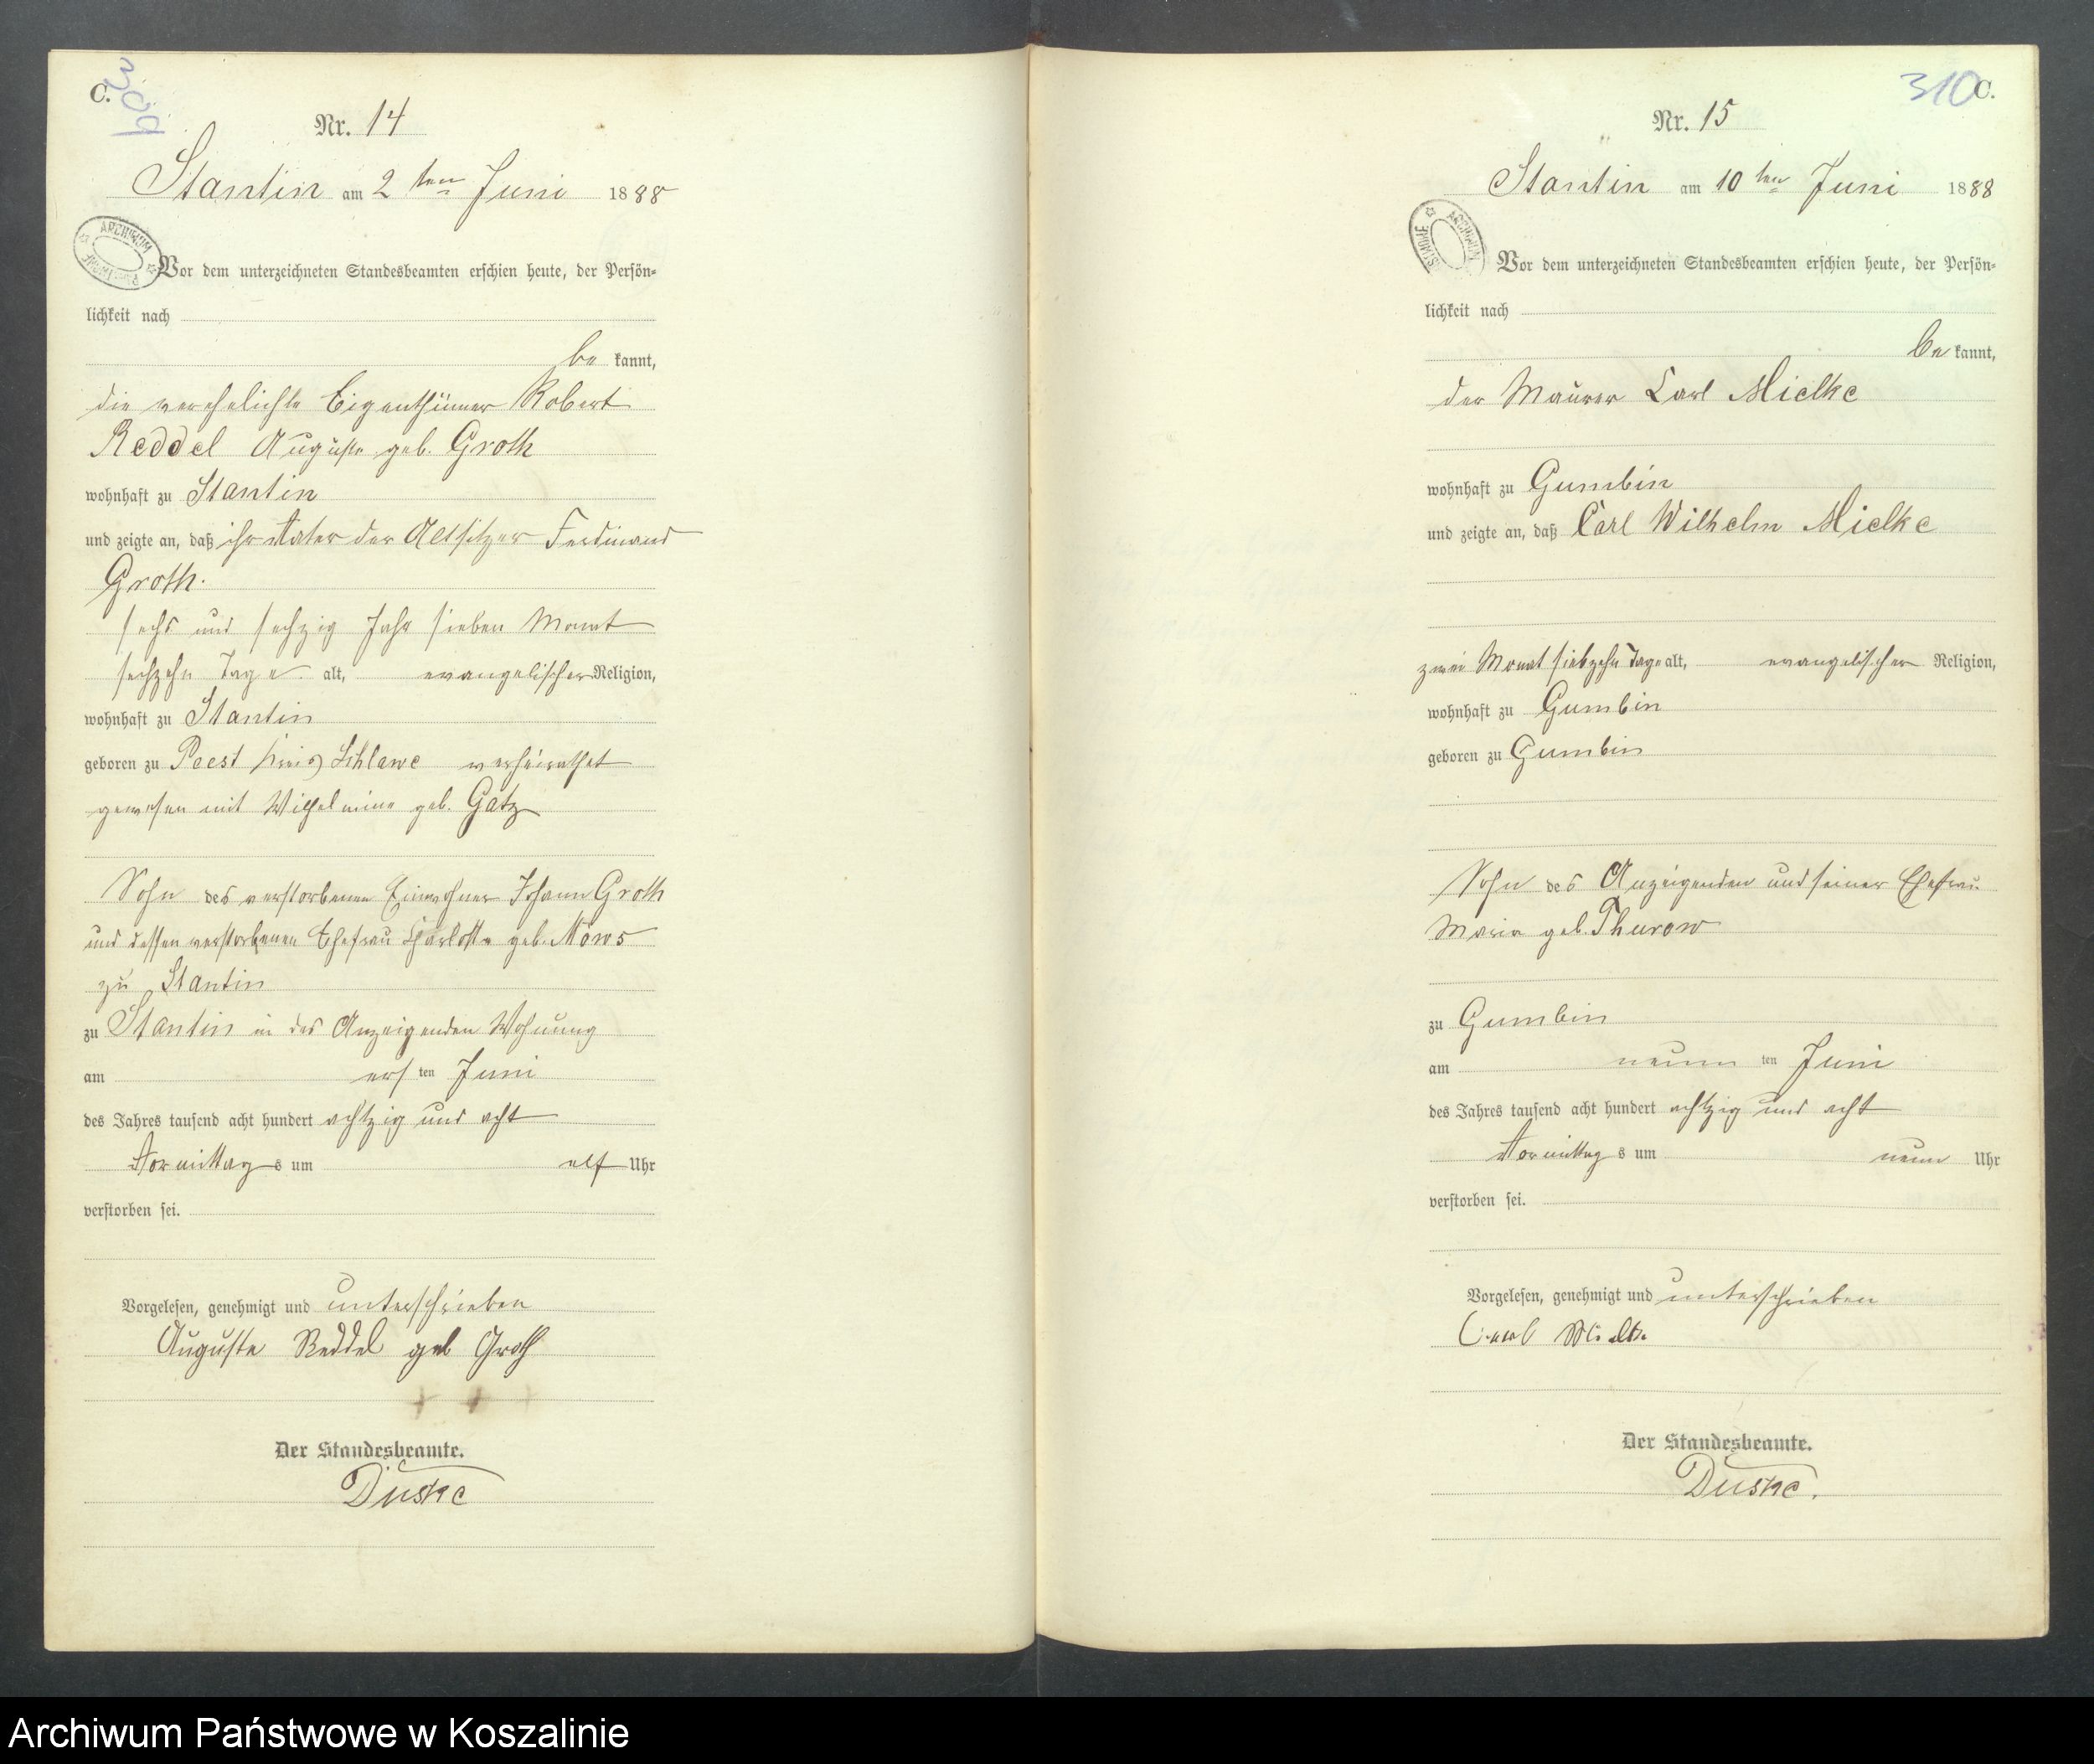 C.
309
Nr. 14
Stantin am 2 ten Juni 1888
ARCHIWUM
Vor dem unterzeichneten Standesbeamten erschien heute, der Persön=
lichkeit nach
be kannt,
die verehelichte Eigenthümer Robert
Reddel Auguste geb. Groth
wohnhaft zu Stantin
und zeigte an, daß ihr Vater der Altsitzer Ferdinand
Groth.
sechs und sechzig Jahr sieben Monat
sechzehn Tage alt, evangelischer Religion,
wohnhaft zu Stantin
geboren zu Peest Kreis Schlawe verheirathet
gewesen mit Wilhelmine geb. Gatz
Sohn des verstorbenen Einwohner Johann Groth
und dessen verstorbenen Ehefrau Charlotte geb. Möws
zu Stantin
zu Stantin in des Anzeigenden Wohnung
am ers ten Juni
des Jahres tausend acht hundert achtzig und acht
Vormittag s um elf Uhr
verstorben sei.
Vorgelesen, genehmigt und unterschrieben
Auguste Reddel geb Groth
Der Standesbeamte.
Duske
310
C.
Nr. 15
Stantin am 10 ten Juni 1888
ARCHIWUM
Vor dem unterzeichneten Standesbeamten erschien heute, der Persön=
lichkeit nach
be kannt,
der Maurer Carl Mielke
wohnhaft zu Gumbin
und zeigte an, daß Carl Wilhelm Mielke
zwei Monat siebzehn Tage alt, evangelischer Religion,
wohnhaft zu Gumbin
geboren zu Gumbin
Sohn des Anzeigenden und seiner Ehefrau
Marie geb. Thurow
zu Gumbin
am neun ten Juni
des Jahres tausend acht hundert achtzig und acht
Vormittag s um neun Uhr
verstorben sei.
Vorgelesen, genehmigt und unterschrieben
Carl Mielke
Der Standesbeamte.
Duske.
Archiwum Państwowe w Koszalinie